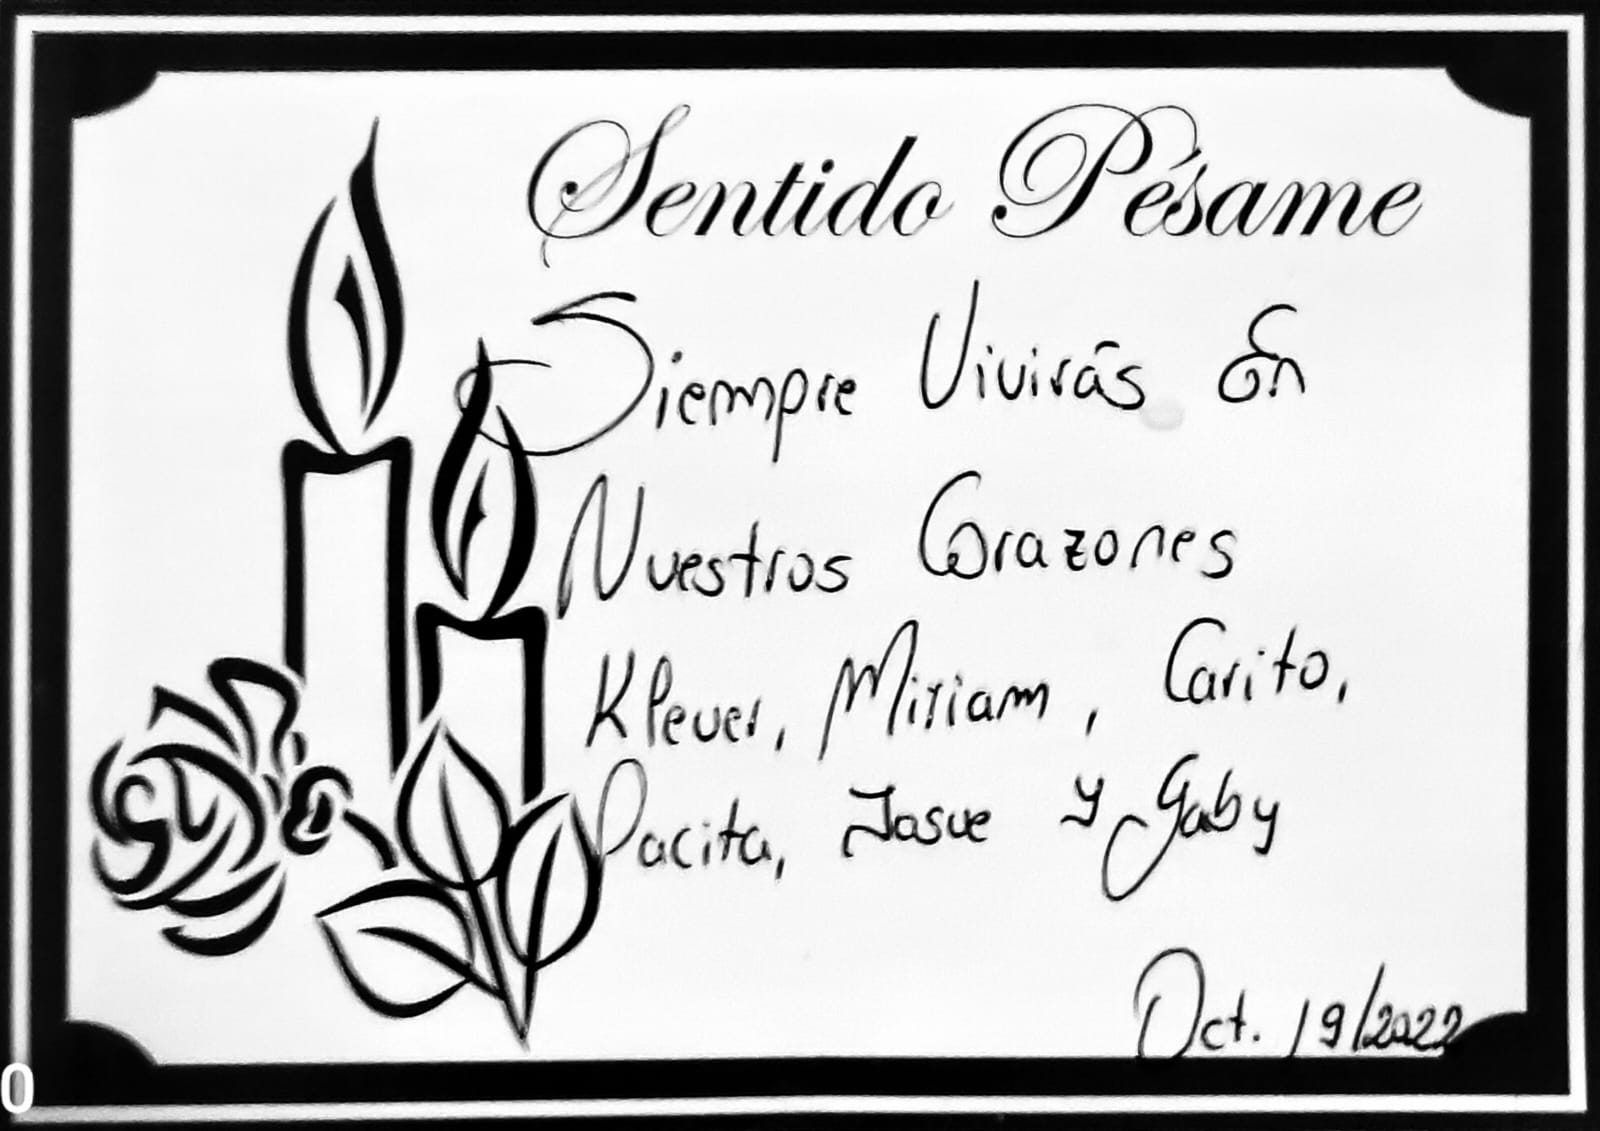 Sentido Pésame
Siempre Vivirás En
Nuestros Corazones
Klever, Miriam, Carito,
Pacita, Josue y Gaby
Oct. 19/2022
0